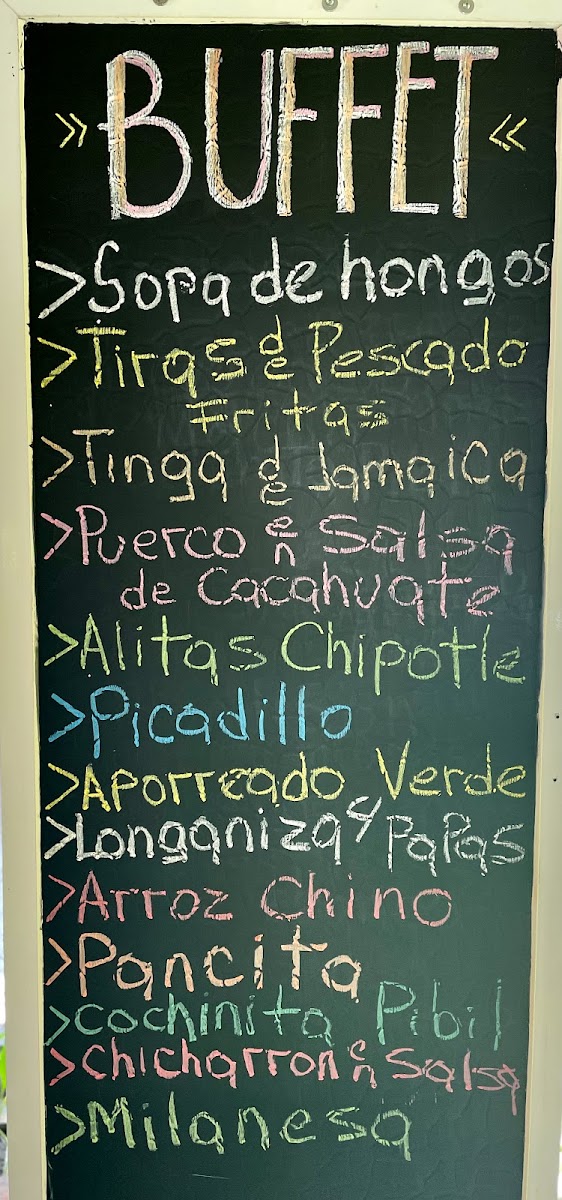 » BUFFET «
>Sopa de hongos
>Tiras de Pescado
Fritas
>Tinga de Jamaica
>Puerco en Salsa
de Cacahuate
>Alitas Chipotle
>Picadillo
>Aporreado Verde
>Longaniza c/ Papas
>Arroz Chino
>Pancita
>cochinita Pibil
>chicharron en Salsa
>Milanesa